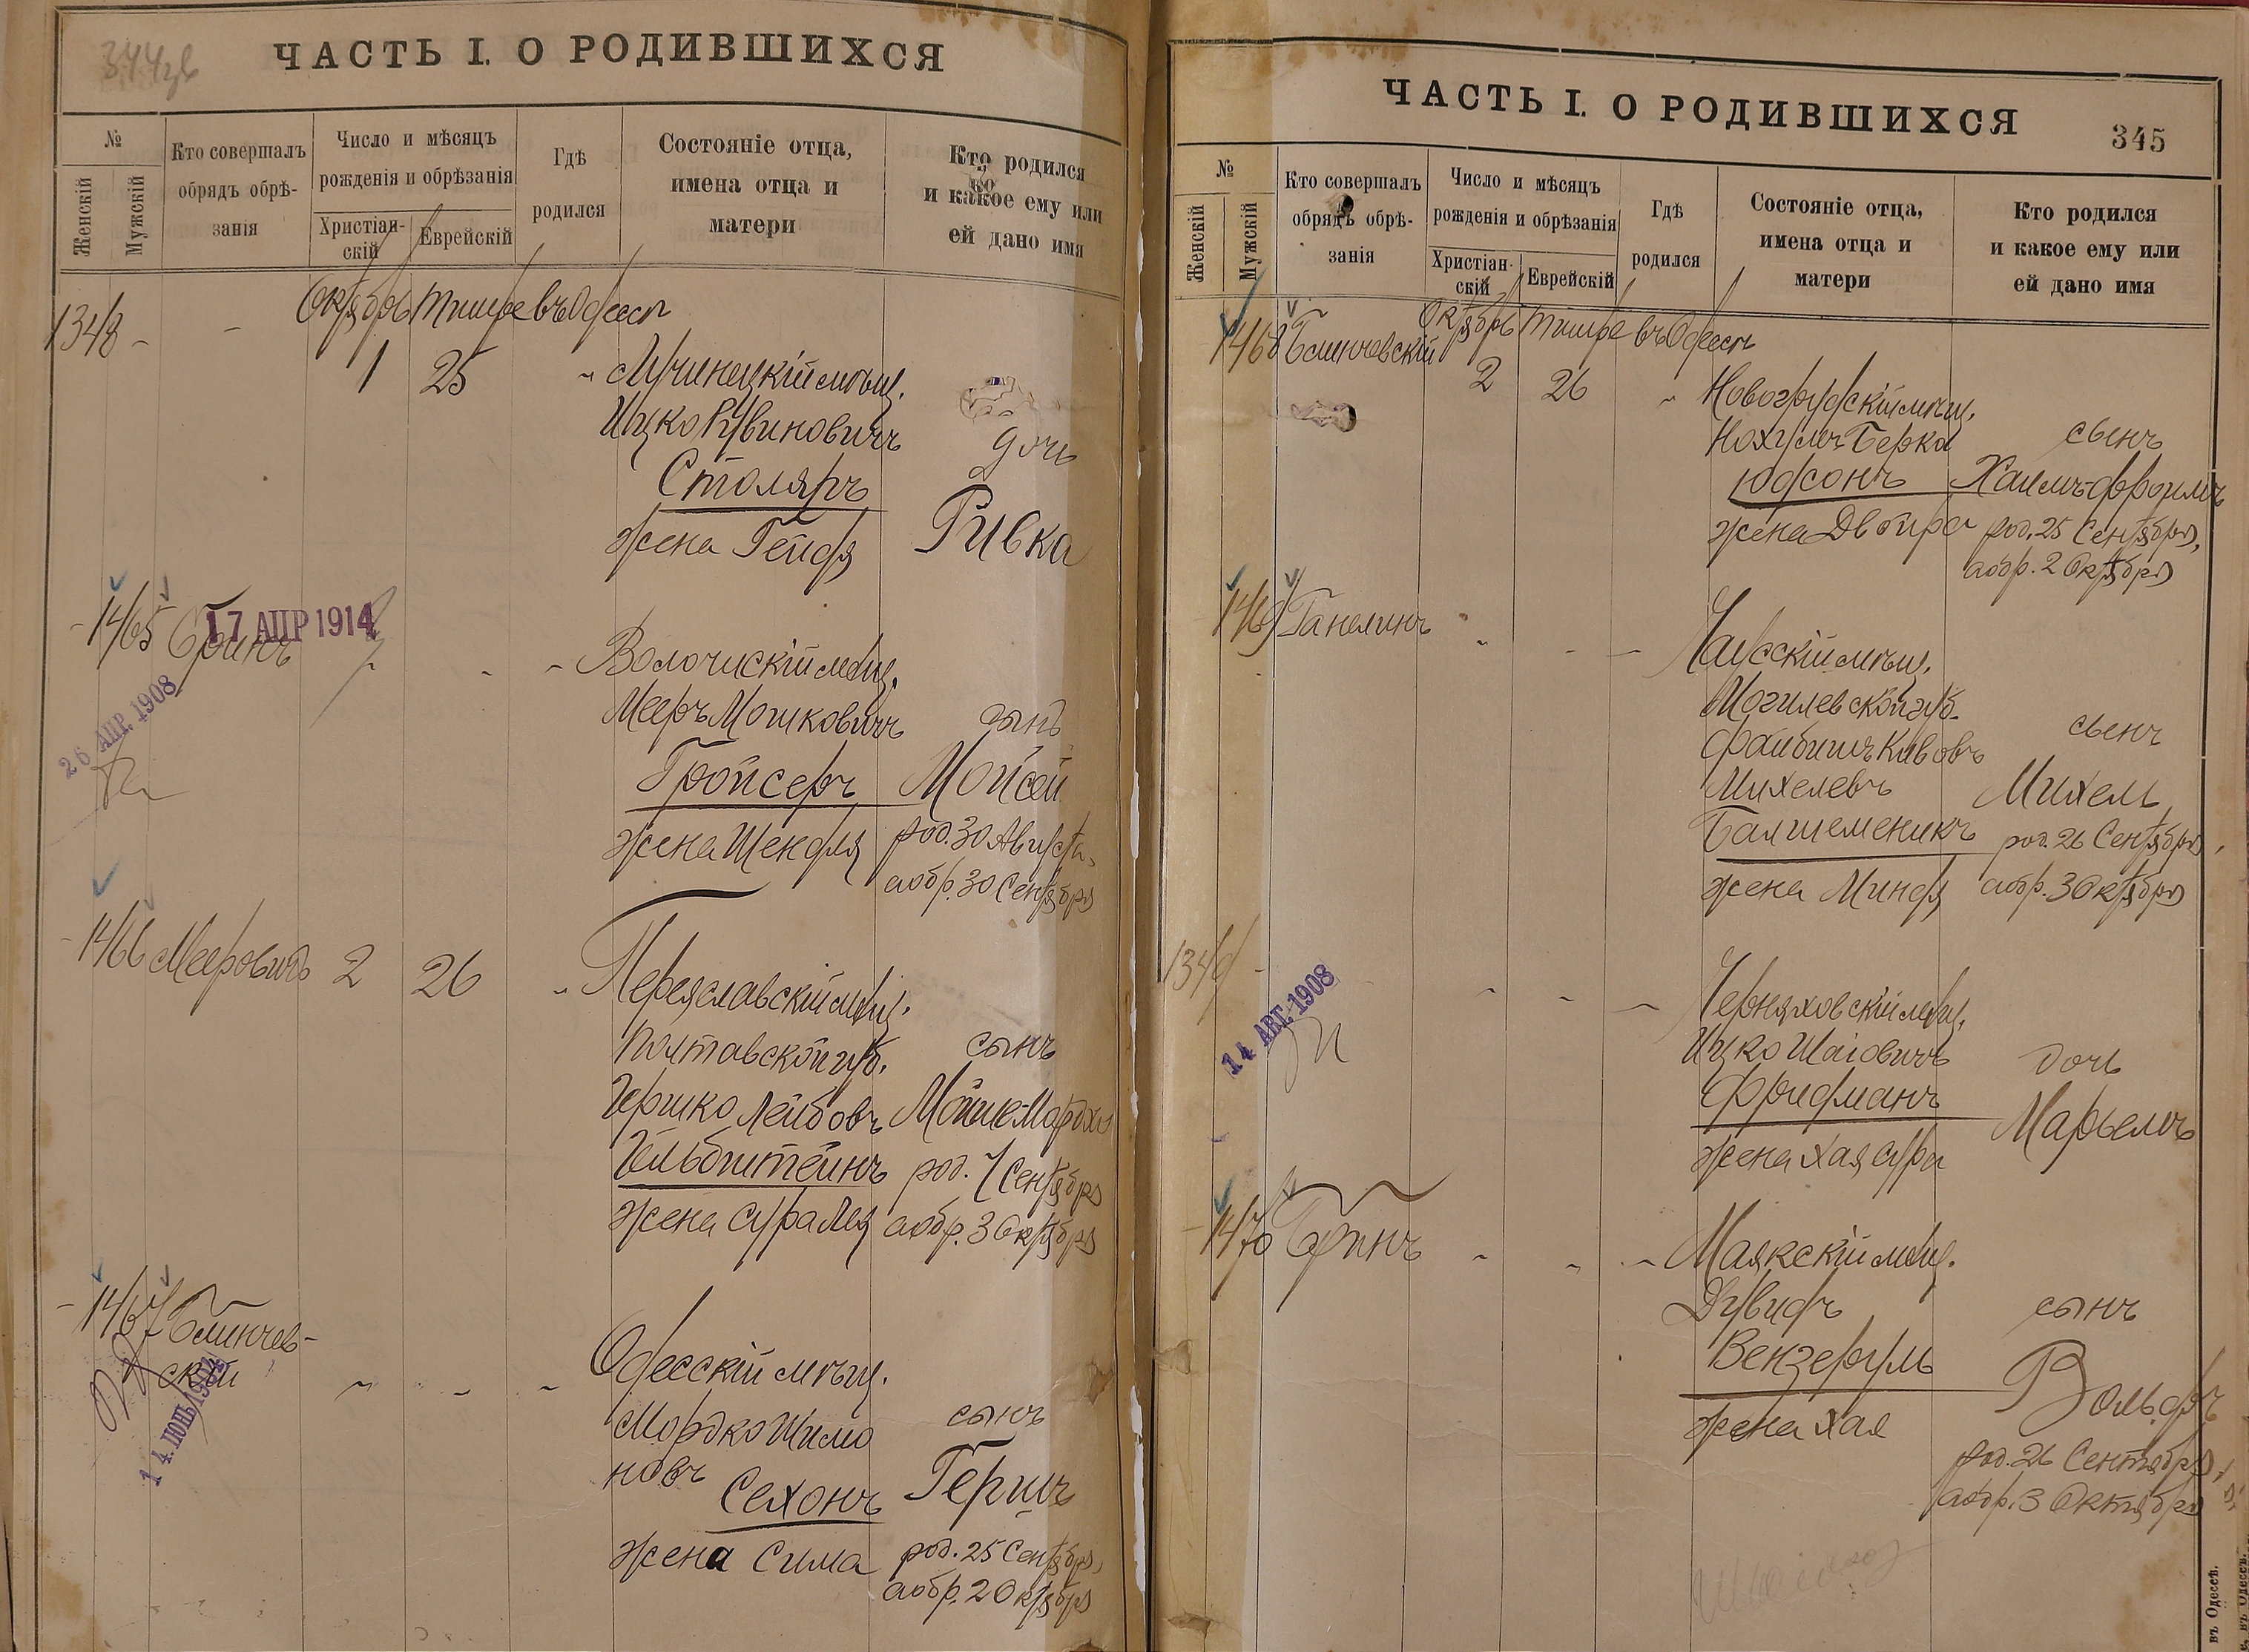 ЧАСТЬ I. О РОДИВШИХСЯ
№
Женскій
Мужскій
Кто совершалъ
обрядъ обрѣ-
занія
Число и мѣсяцъ
рожденія и обрѣзанія
Христіан-
скій
Еврейскій
Гдѣ
родился
Состояніе отца,
имена отца и
матери
Кто родился
и какое ему или
ей дано имя
Октябрь Тишре въ Одессѣ
1348 -
1 25
Лучинецкій мѣщ.
Ицко Рувиновичъ
Столяръ
жена Гейдя
дочь
Ривка
1465
Гринъ
17 АПР 1914
26 АПР. 1908
Волочискій мѣщ.
Мееръ Мошковичъ
Гройсеръ
жена Шендля
сынъ
Мойсей
род. 30 Августа,
а обр. 30 Сентября
1466 Мееровичъ 2 26
Переяславскій мѣщ.
Полтавской губ.
Гершко Лейбовъ
Гельбштейнъ
жена Сура Лея
сынъ
Мойше-Мордхо
род. 7 Сентября
а обр. 3 Октября
1467 Блинчев-
скій
Одесскій мѣщ.
Мордко Шимо
новъ
Сехонъ
жена Сима
сынъ
Гершъ
род. 25 Сентября,
а обр. 2 Октября
ЧАСТЬ I. О РОДИВШИХСЯ
345
№
Женскій
Мужскій
Кто совершалъ
обрядъ обрѣ-
занія
Число и мѣсяцъ
рожденія и обрѣзанія
Христіан-
скій
Еврейскій
Гдѣ
родился
Состояніе отца,
имена отца и
матери
Кто родился
и какое ему или
ей дано имя
Октябрь Тишре въ Одессѣ
1468 Блинчевскій
2 26
Новогрудскій мѣщ.
Нохумъ-Берка
Юдсонъ
жена Двейра
сынъ
Хаимъ-Фроимъ
род. 25 Сентября,
а обр. 2 Октября
1469 Ганелинъ
Чаусскій мѣщ.
Могилевской губ.
Файбишъ Кивовъ
Михелевъ
Балшеменикъ
жена Миндя
сынъ
Михель
род. 26 Сентября,
а обр. 3 Октября
1349 -
14 АВГ. 1908
Черняховскій мѣщ.
Ицко Шаіовичъ
Фридманъ
жена Хая Сура
дочь
Марьемъ
1470 Гринъ
Маякскій мѣщ.
Дувидъ
Венгеруль
жена Хая
сынъ
Вольфъ
род. 26 Сентября,
а обр. 3 Октября
въ Одессѣ.